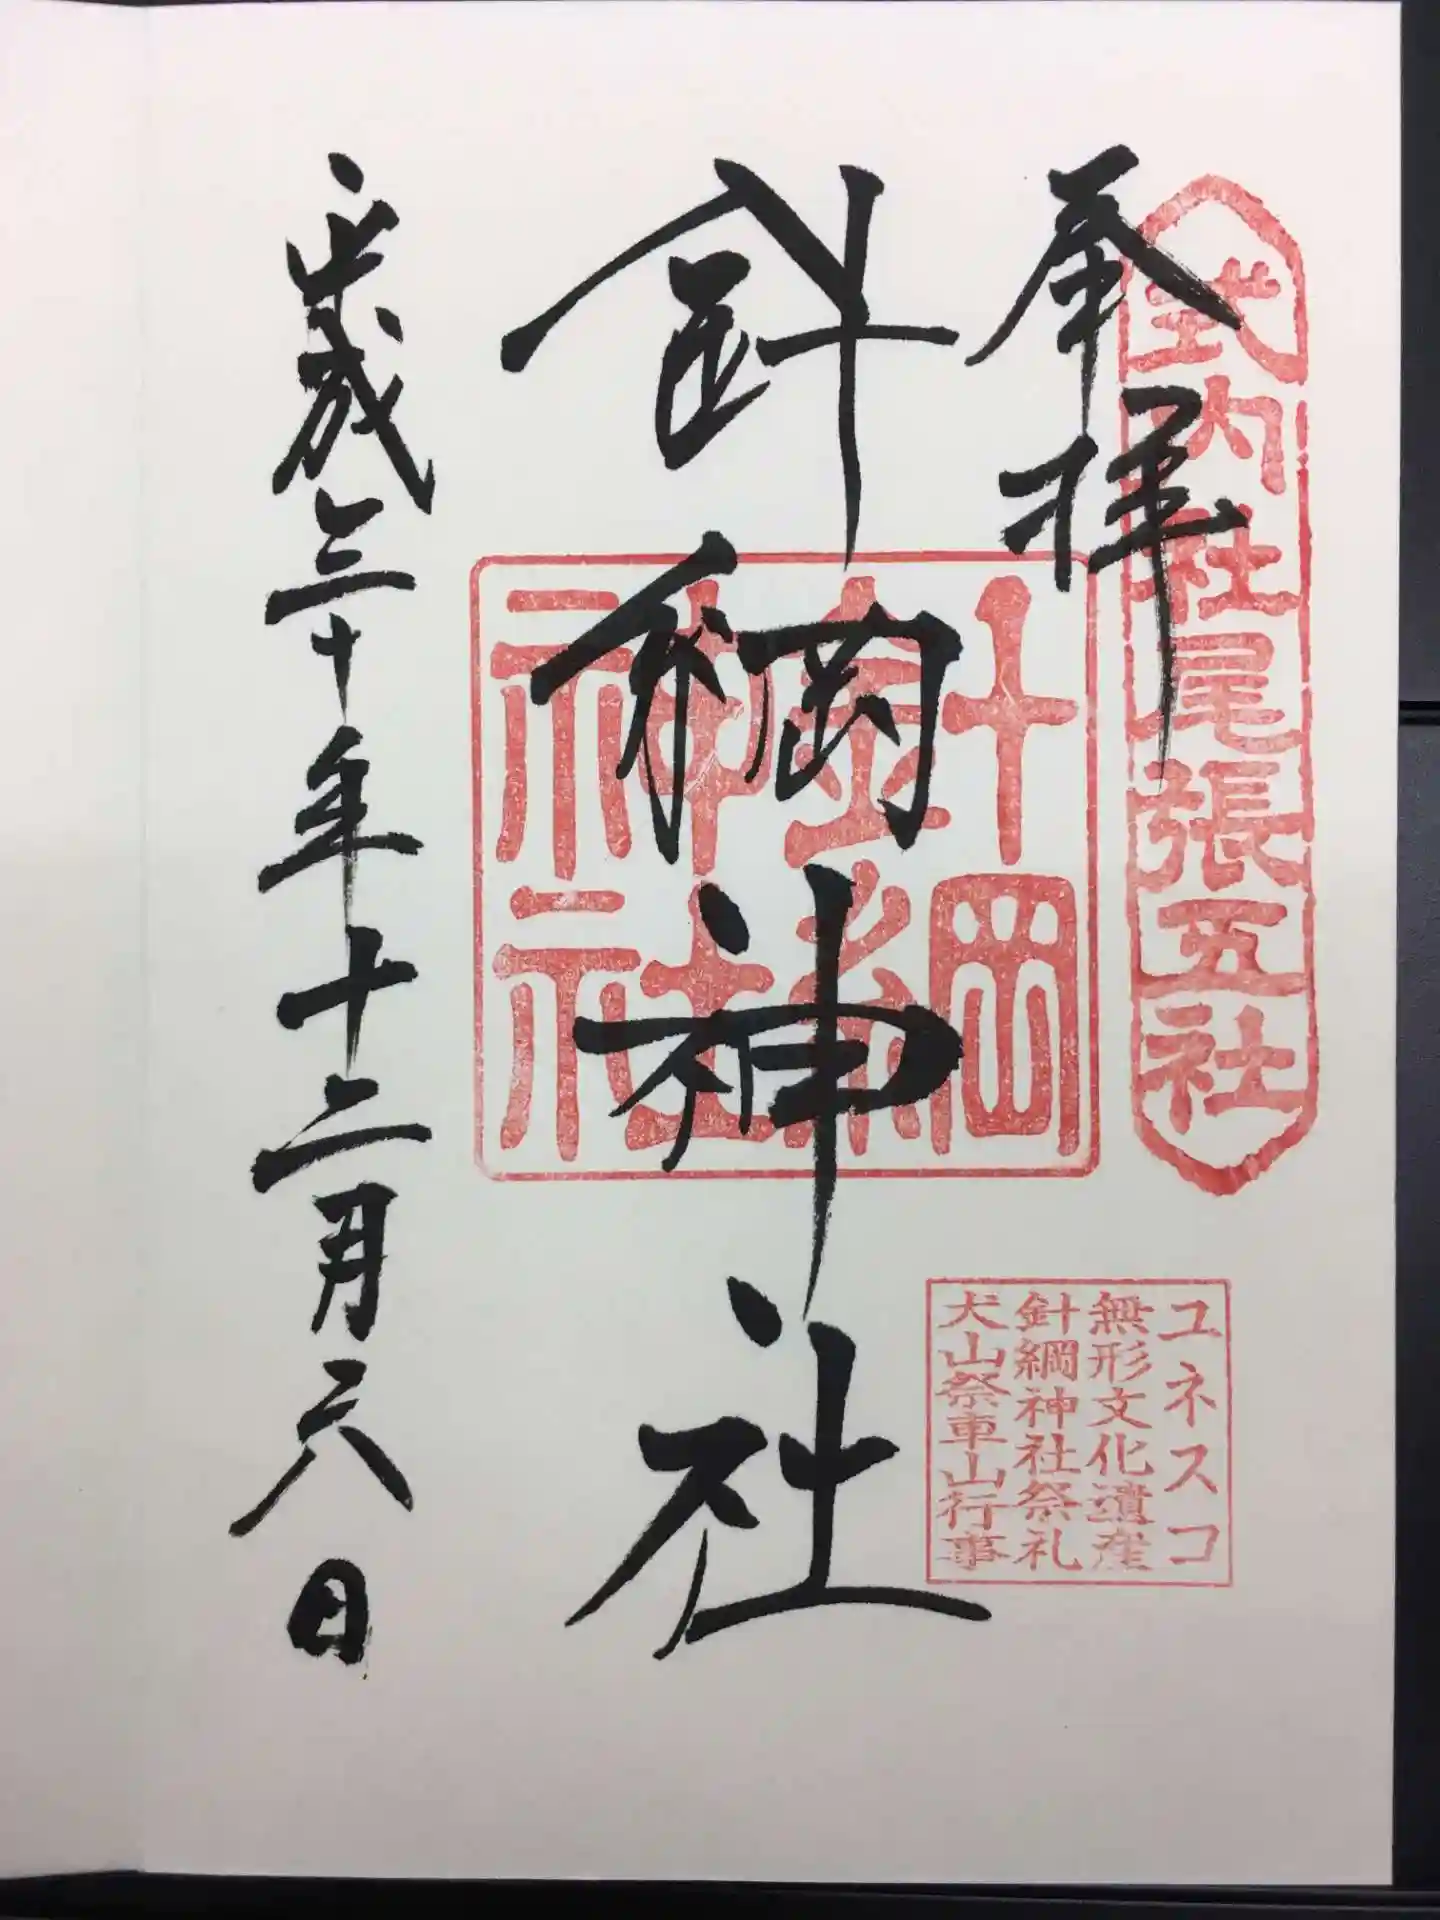 式内社尾張五社
奉拝
針綱神社
針綱神社
ユネスコ
無形文化遺産
針綱神社祭礼
犬山祭車山行事
平成三十年十二月六日